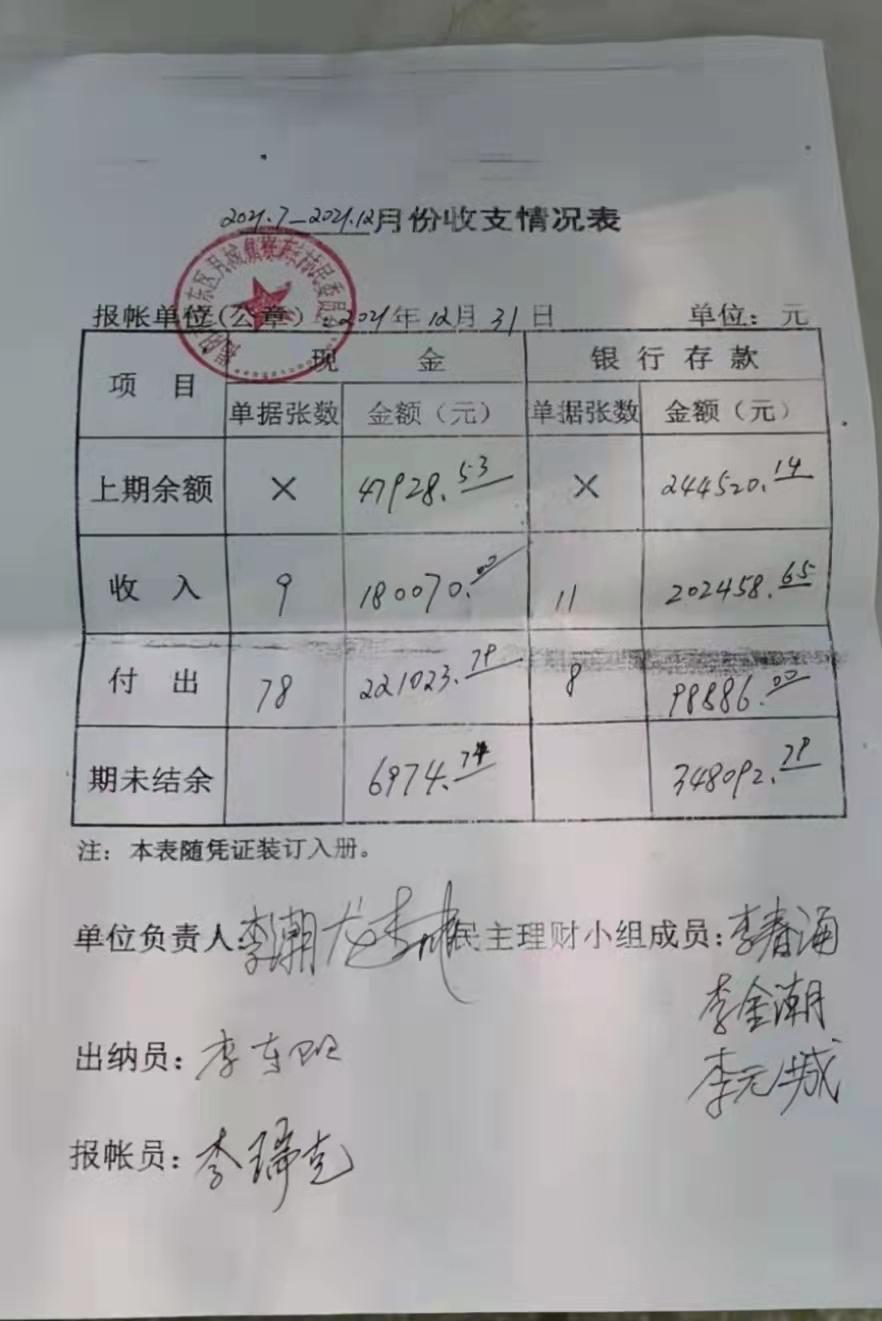 2021.7—2021.12月份收支情况表
东区月城镇 东村民委员
报帐单位(公章):2021年12月31日 单位:元
项 目 现 金 银行存款
单据张数 金额(元) 单据张数 金额(元)
上期余额 × 47928.53 × 244520.14
收 入 9 180070.00 11 202458.65
付 出 78 221023.79 8 98886.00
期未结余 6974.74 348092.79
注:本表随凭证装订入册。
单位负责人:李潮龙 李 民主理财小组成员:李春涌
李金潮
出纳员:李东 李元城
报帐员:李瑞克